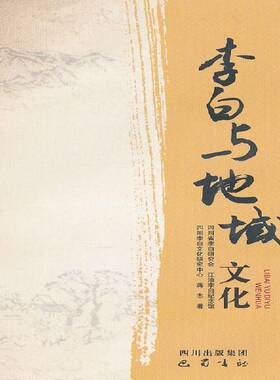 李白与地域
文化
LIBAI YU DIYU
WENHUA
四川省李白研究会 江油李白纪念馆
四川李白文化研究中心 蒋志 著
四川出版集团
巴蜀书社